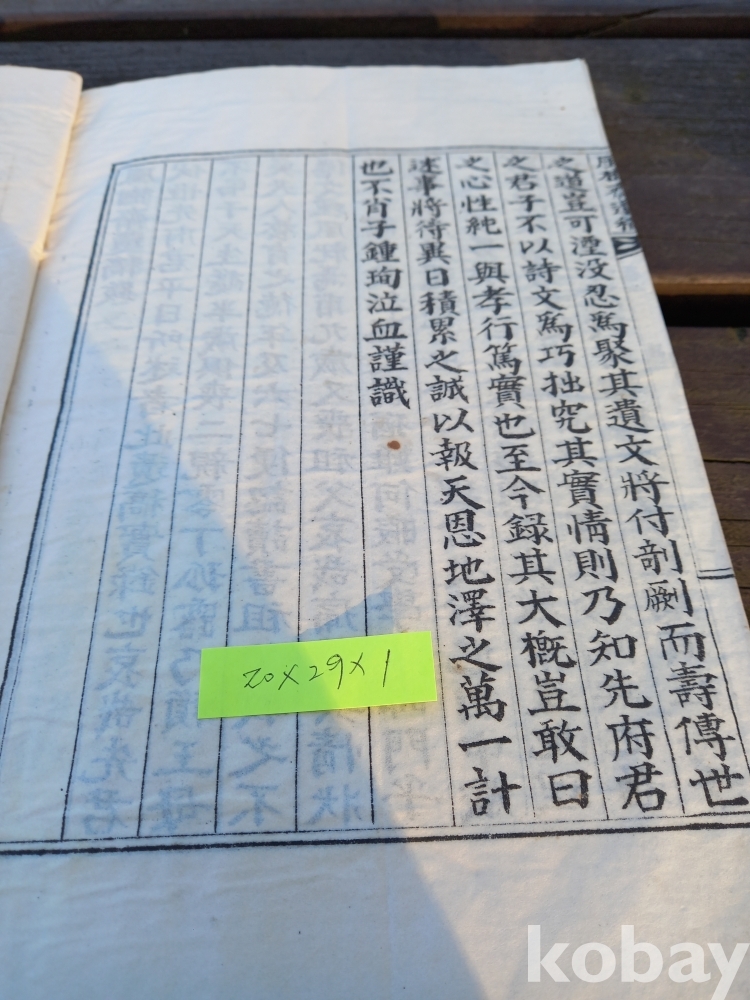 之道豈可湮没忍爲聚其遺文將付剞劂而壽傳世
之君子不以詩文爲巧拙究其實情則乃知先府君
之心性純一與孝行篤實也至今録其大槪豈敢曰
述事將待異日積累之誠以報天恩地澤之萬一計
也不肖子鍾珣泣血謹識
20×29×1
kobay